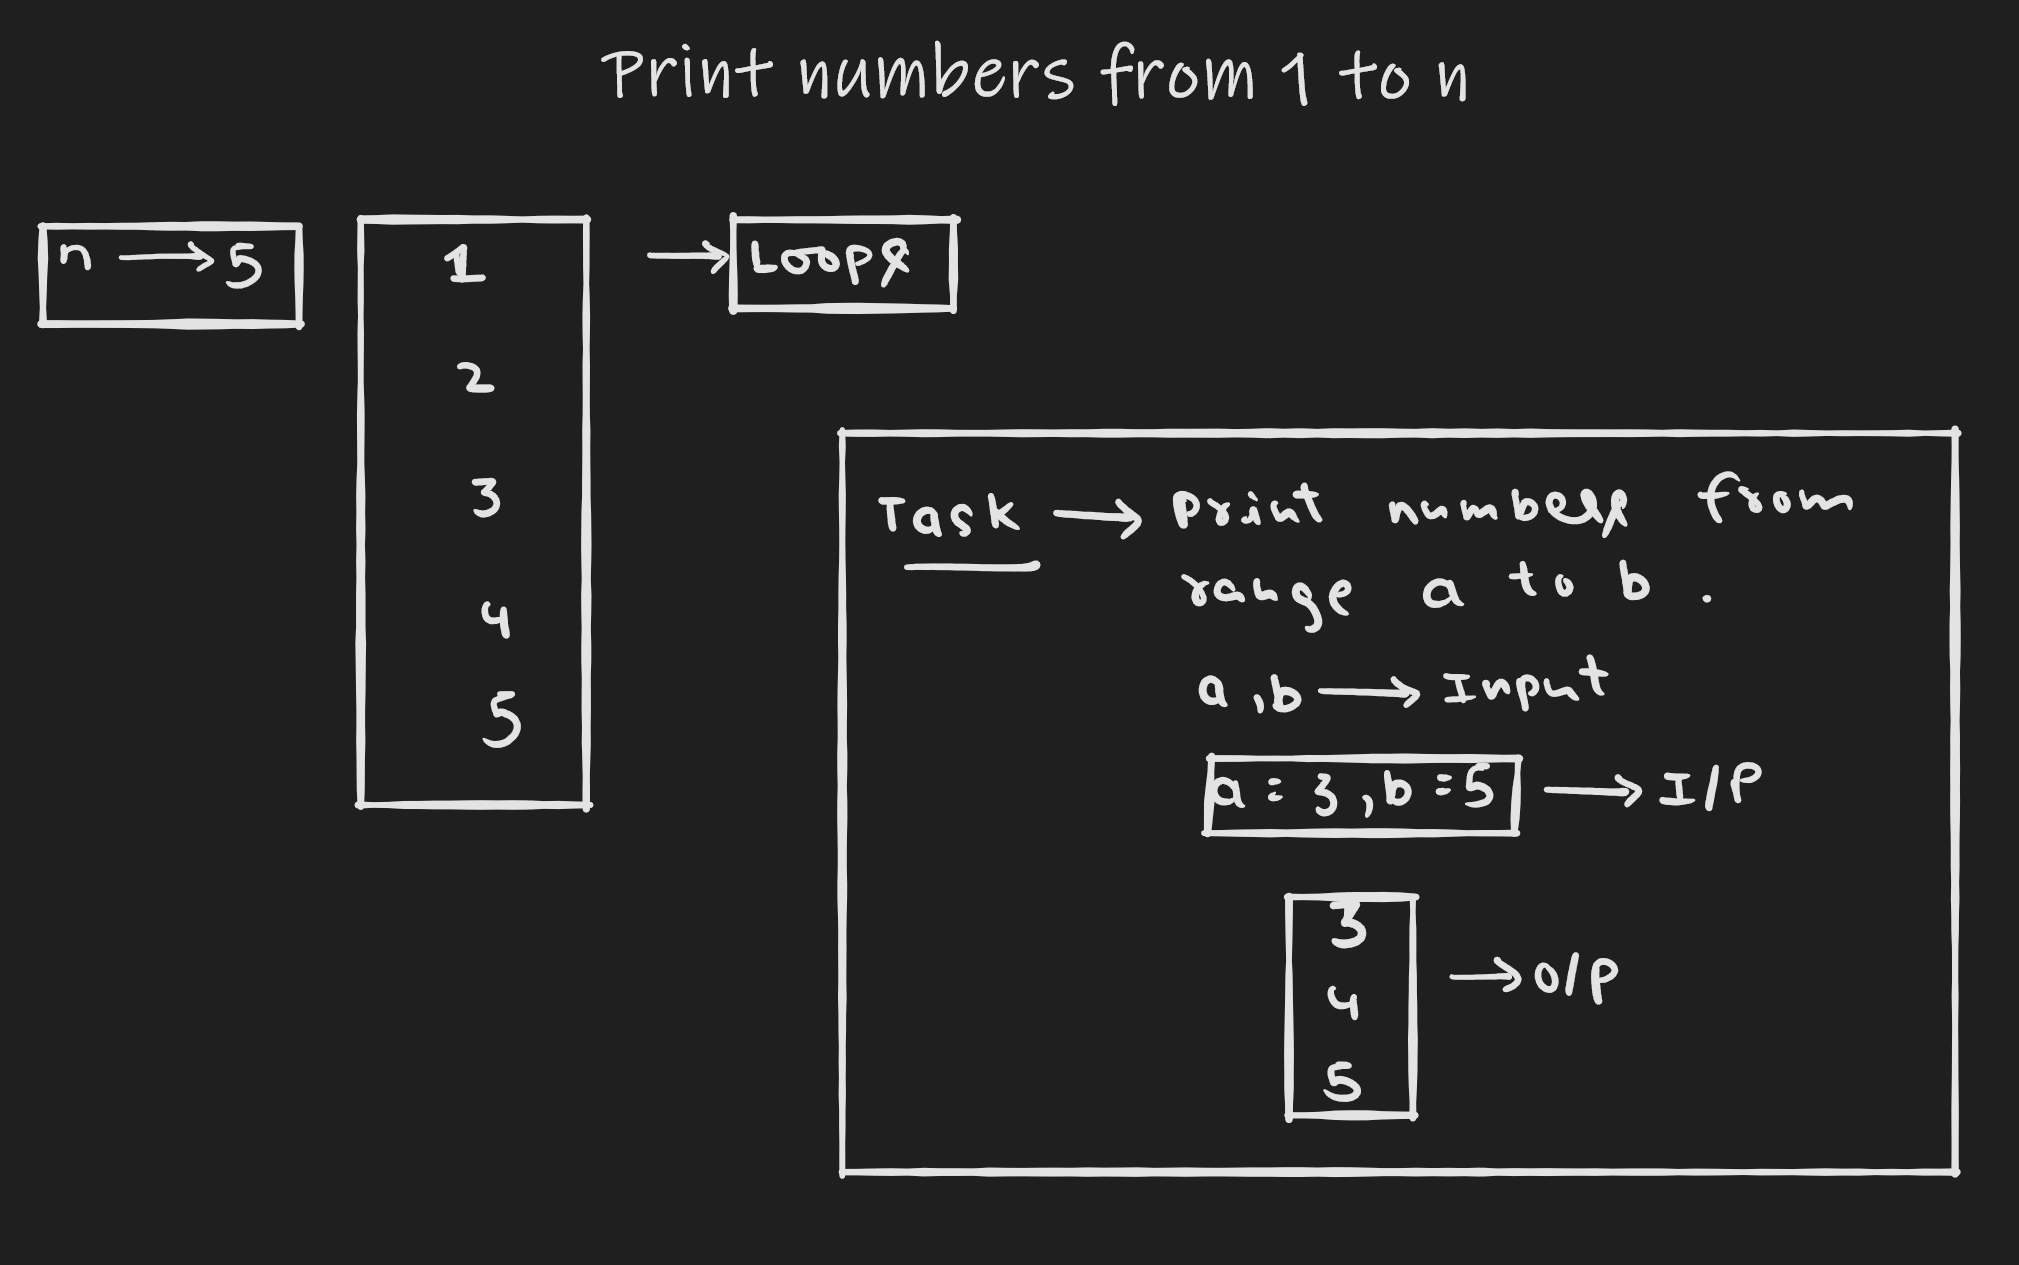 Print numbers from 1 to n
n → 5
1
2
3
4
5
→ Loops
Task → Print numbers from
range a to b .
a , b → Input
a = 3 , b = 5 → I/P
3
4
5
→ O/P